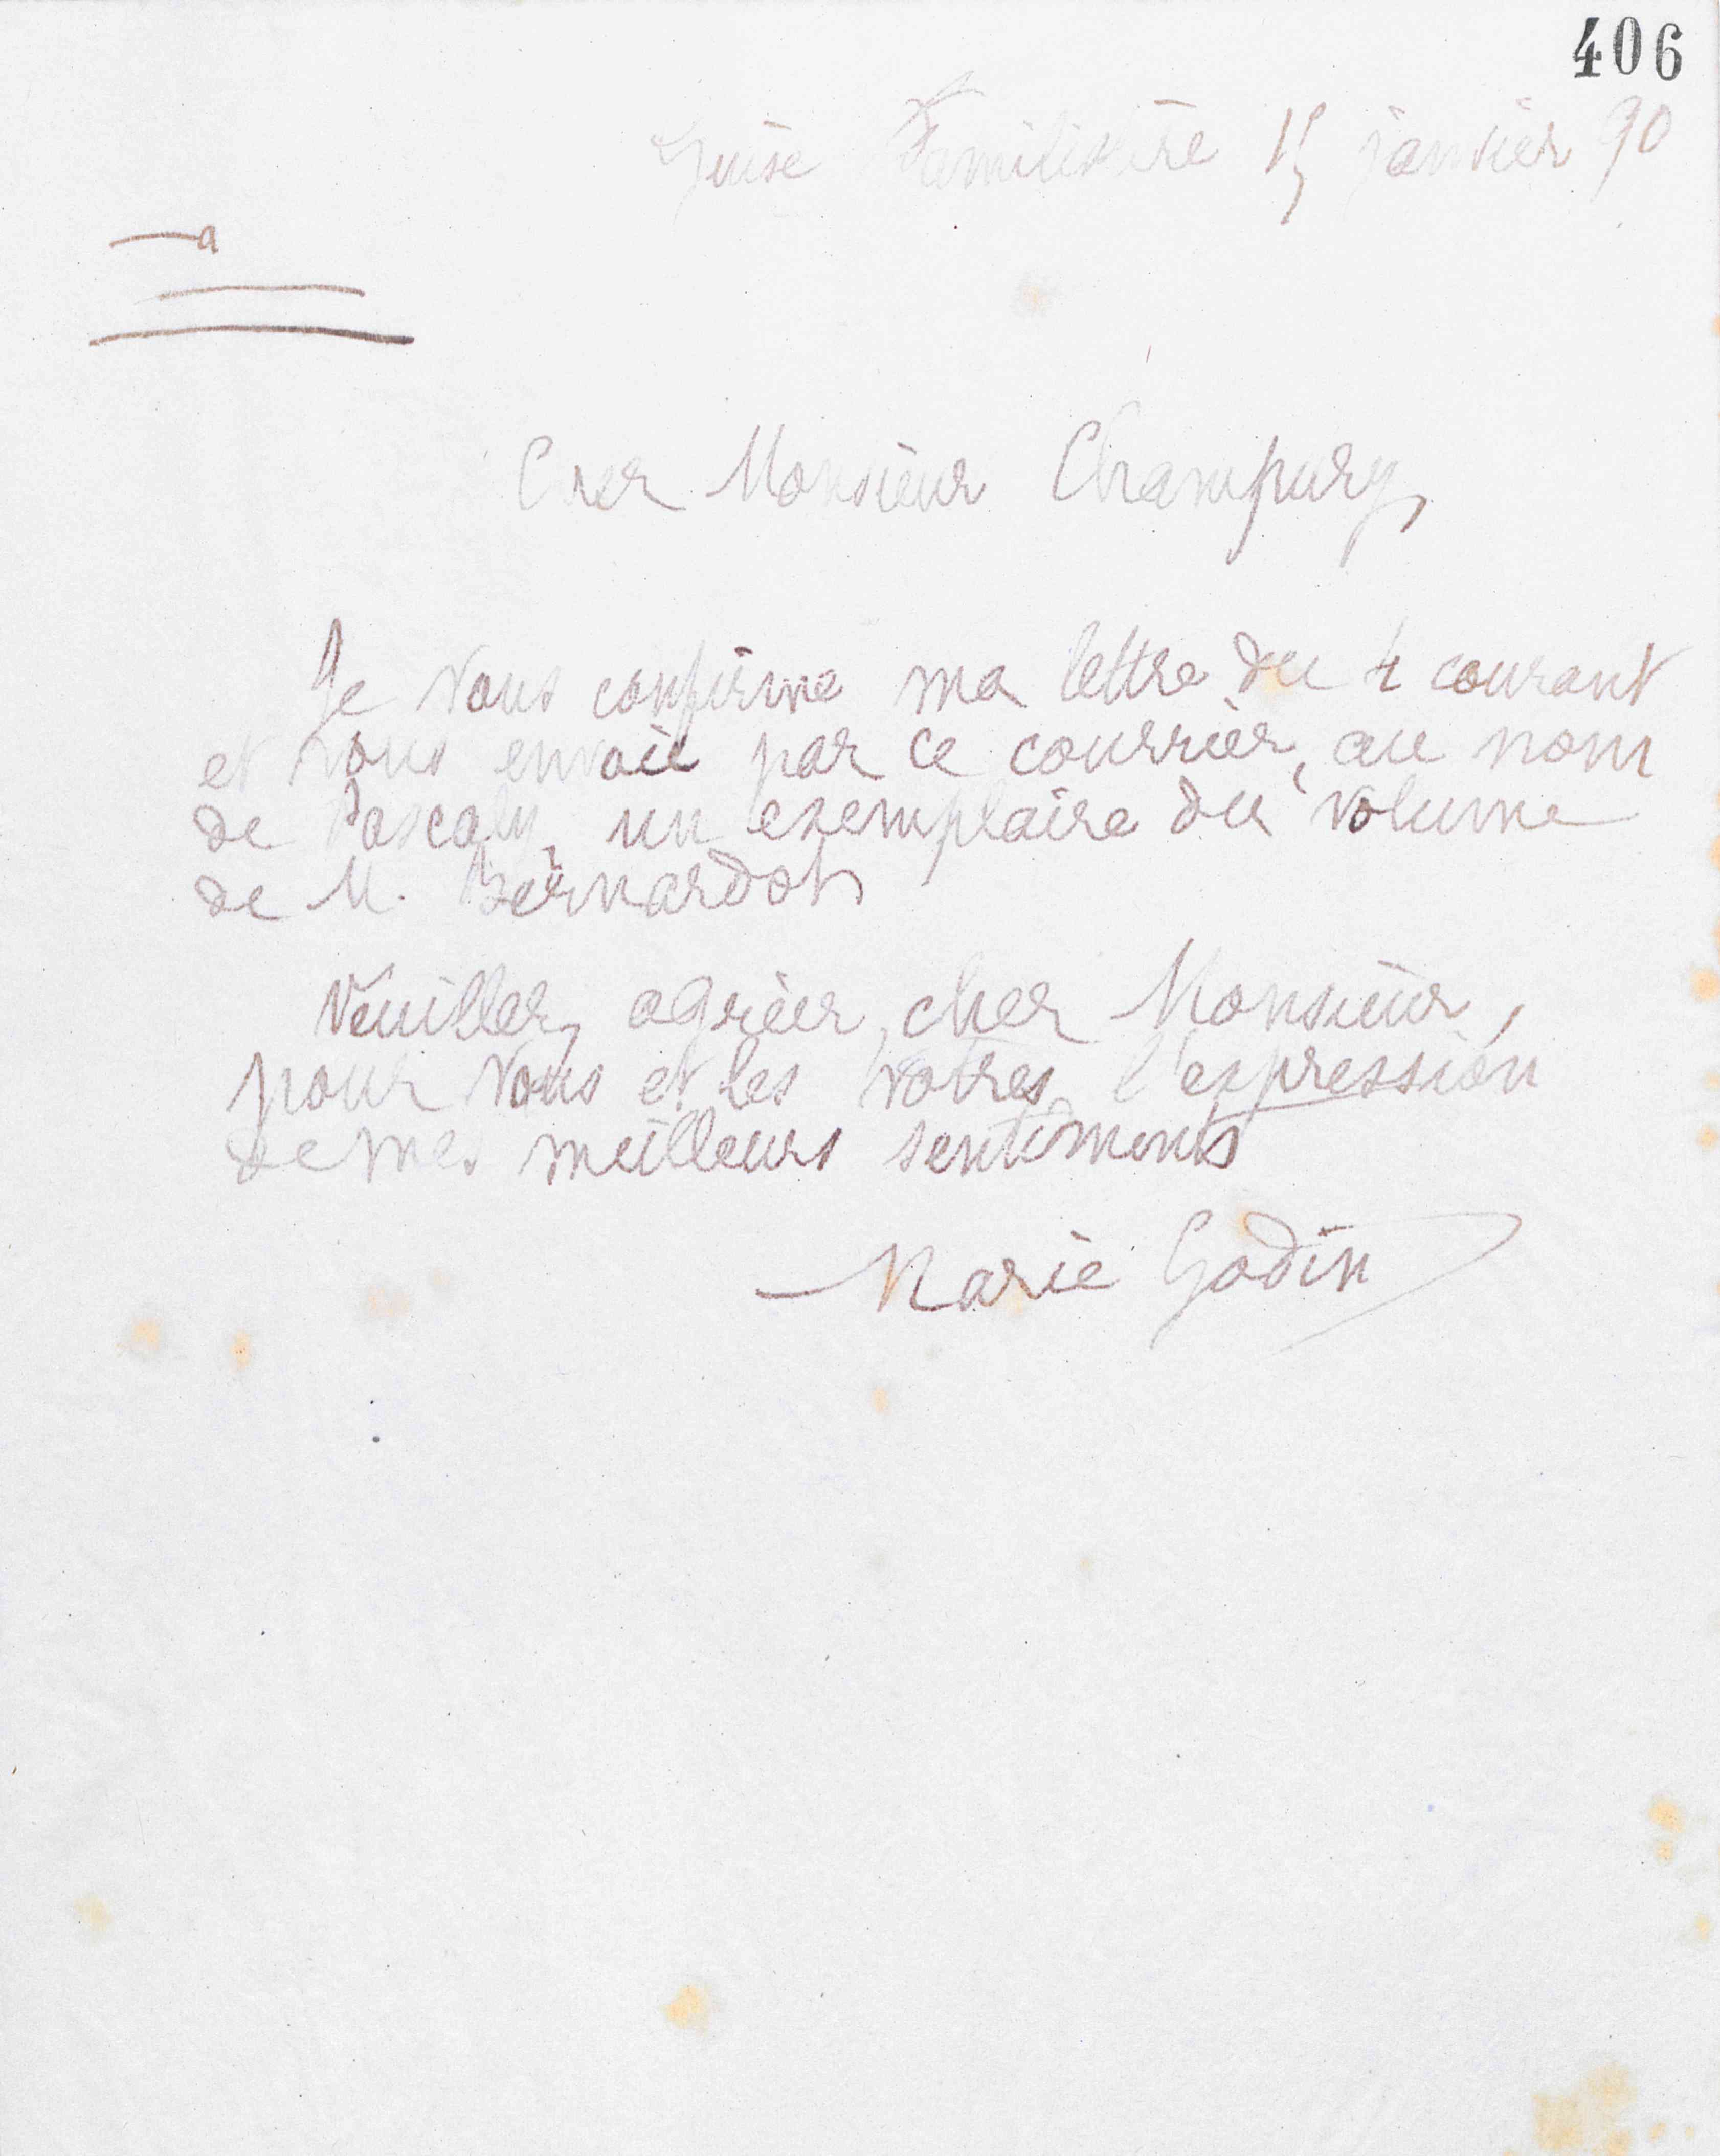 406
Guise Familistère 15 janvier 90
a
Cher Monsieur Champury,
Je vous confirme ma lettre du 4 courant
et vous envoie par ce courrier, au nom
de Pascaly, un exemplaire du volume
de M. Bernardot.
Veuillez agréer, cher Monsieur,
pour vous et les vôtres l'expression
de mes meilleurs sentiments
Marie Godin